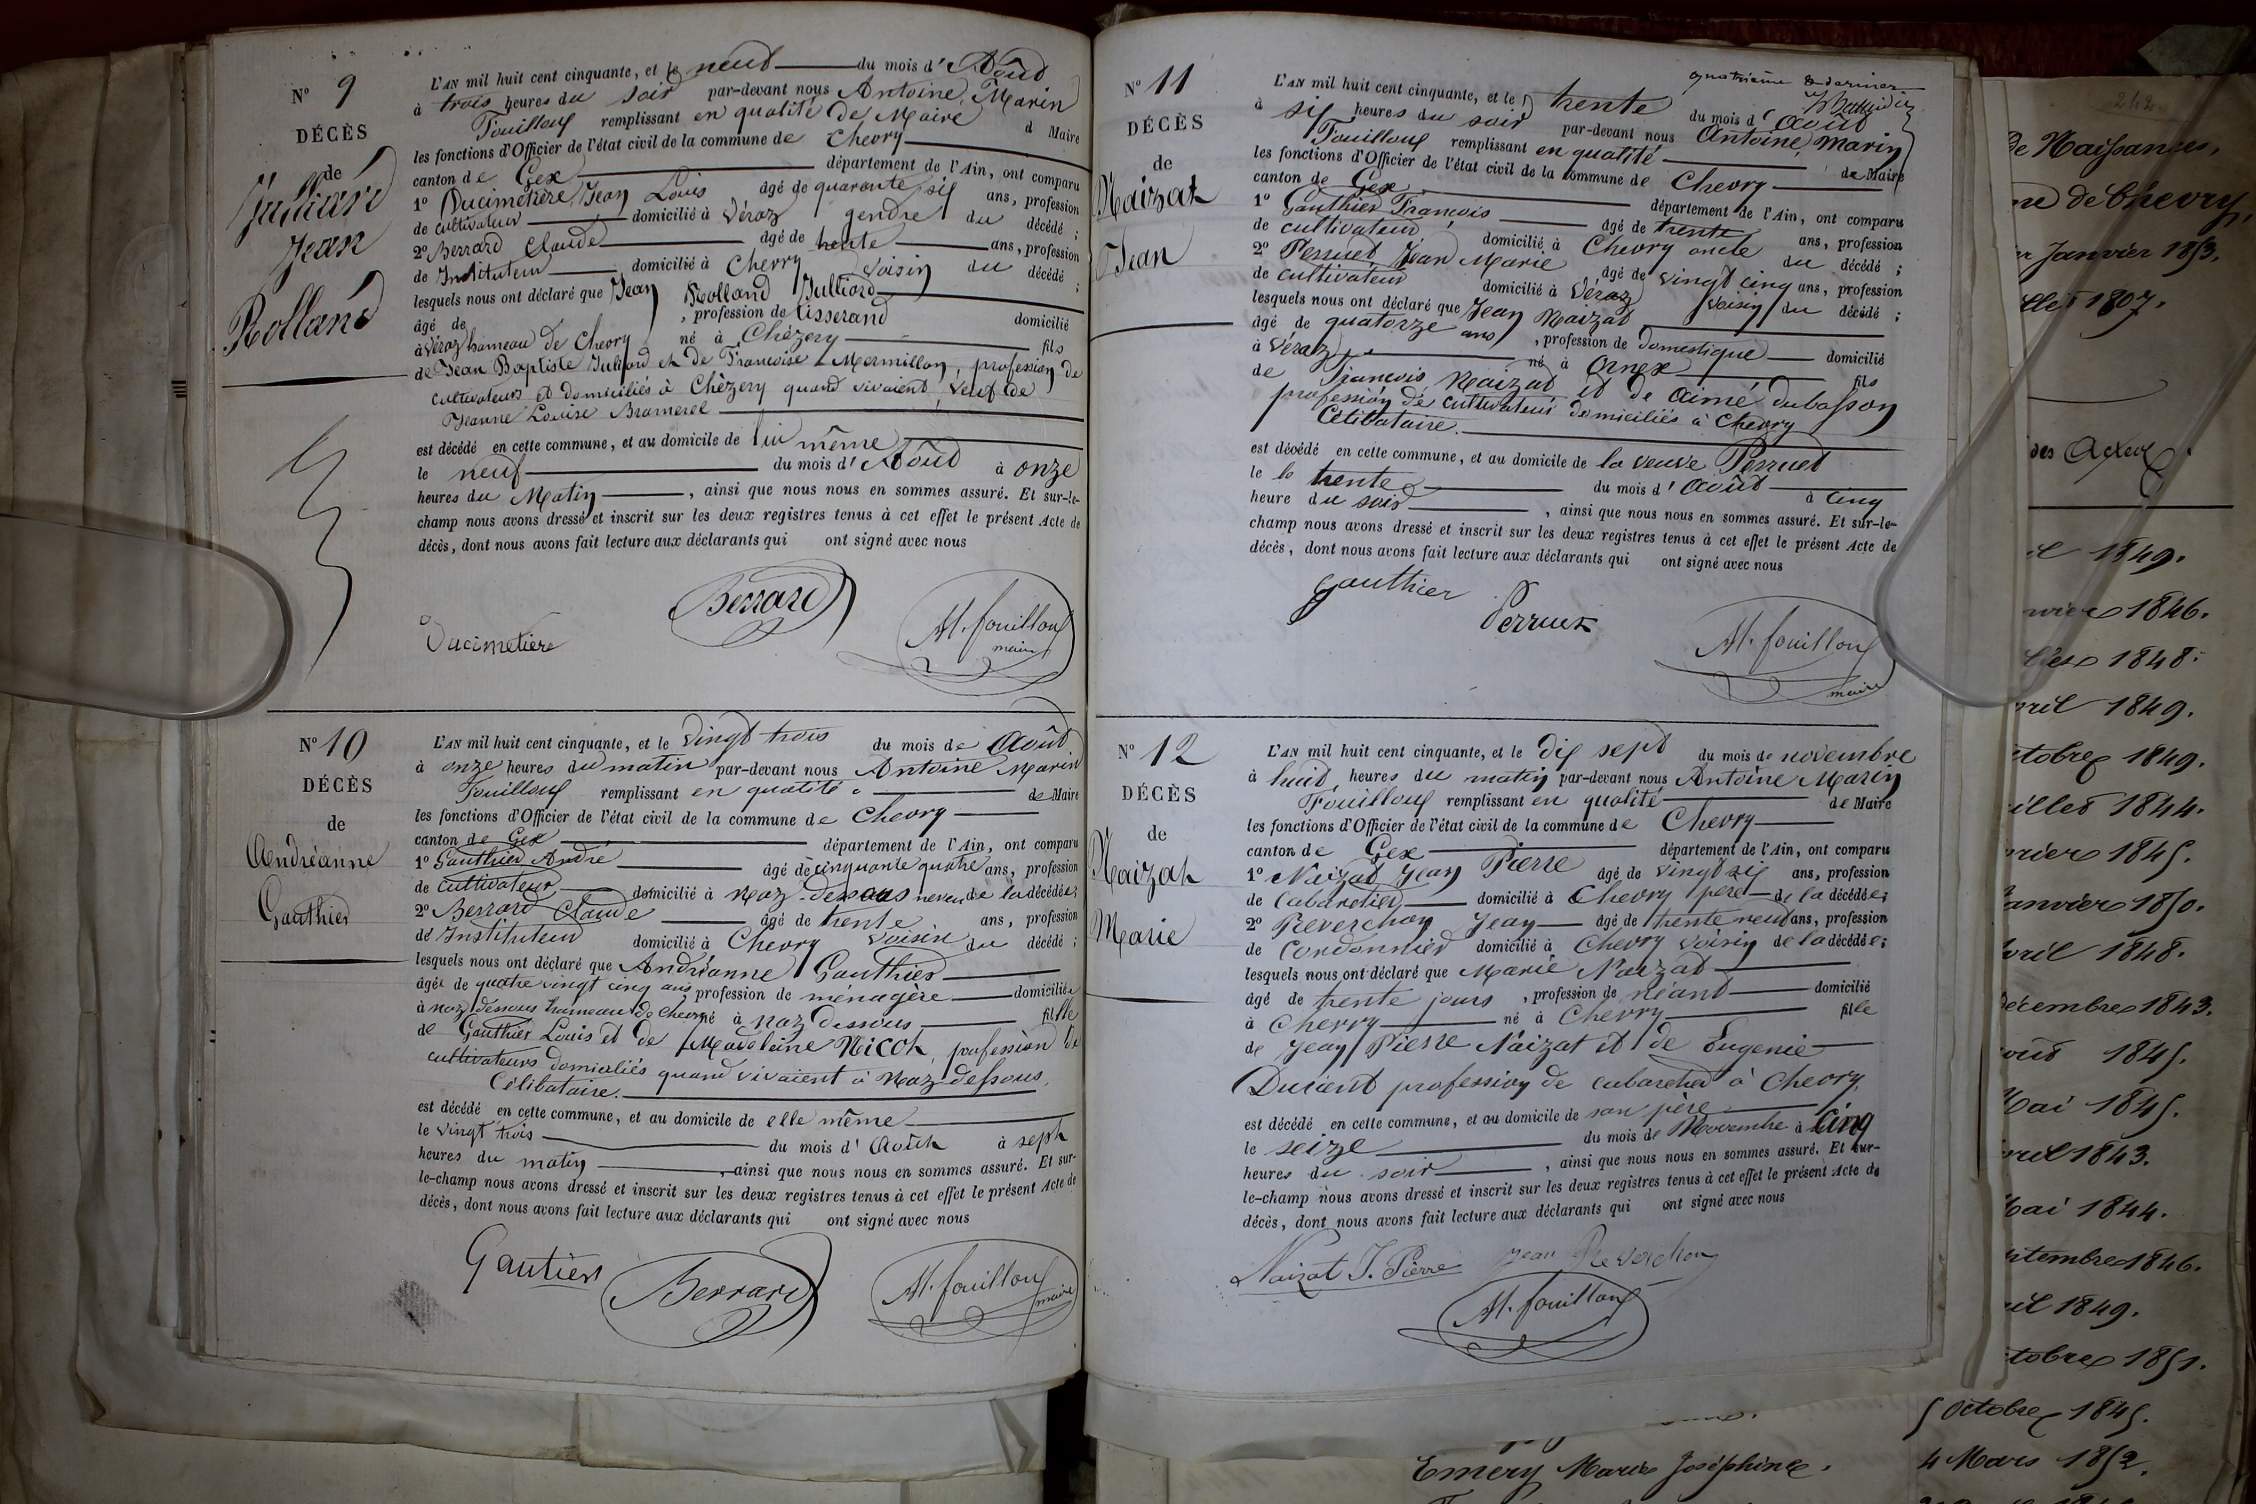 N° 9
DÉCÈS
de
Julliard
Jean
Rolland
L'AN mil huit cent cinquante, et le neuf du mois d'Août
à trois heures du soir par-devant nous Antoine, Marin
Fouilloux remplissant en qualité de Maire d Maire
les fonctions d'Officier de l'état civil de la commune de Chevry
canton de Gex département de l'Ain, ont comparu
1° Ducimetière Jean Louis âgé de quarante six ans, profession
de cultivateur domicilié à Véraz gendre du décédé ;
2° Berrard Claude âgé de trente ans, profession
de Instituteur domicilié à Chevry voisin du décédé ;
lesquels nous ont déclaré que Jean Rolland Julliard
âgé de , profession de tisserand domicilié
à Véraz hameau de Chevry né à Chézery fils
de Jean Baptiste Julliard et de Françoise Mermillon, profession de
cultivateurs et domiciliés à Chèzery quand vivaient, veuf de
Jeanne Louise Bramerel
est décédé en cette commune, et au domicile de lui même
le neuf du mois d'Août à onze
heures du Matin , ainsi que nous nous en sommes assuré. Et sur-le-
champ nous avons dressé et inscrit sur les deux registres tenus à cet effet le présent Acte de
décès, dont nous avons fait lecture aux déclarants qui ont signé avec nous
Berrard
Ducimetière
M. fouilloux
maire
N° 10
DÉCÈS
de
Andréanne
Gauthier
L'AN mil huit cent cinquante, et le vingt trois du mois de Août
à onze heures du matin par-devant nous Antoine Marin
Fouilloux remplissant en qualité de Maire
les fonctions d'Officier de l'état civil de la commune de Chevry
canton de Gex département de l'Ain, ont comparu
1° Gauthier André âgé de cinquante quatre ans, profession
de cultivateur domicilié à Naz-dessous neveu de la décédée ;
2° Berrard Claude âgé de trente ans, profession
de Instituteur domicilié à Chevry voisin du décédé ;
lesquels nous ont déclaré que Andréanne Gauthier
âgée de quatre vingt cinq ans profession de ménagère domiciliée
à Naz dessous hameau de Chevry né à Naz dessous fille
de Gauthier Louis et de Madeleine Nicot, profession de
cultivateurs domiciliés quand vivaient à Naz-dessous,
Célibataire.
est décédé en cette commune, et au domicile de elle même
le vingt trois du mois d'Août à sept
heures du matin , ainsi que nous nous en sommes assuré. Et sur-
le-champ nous avons dressé et inscrit sur les deux registres tenus à cet effet le présent Acte de
décès, dont nous avons fait lecture aux déclarants qui ont signé avec nous
Gautier
Berrard
M. fouilloux
maire
quatrième & dernier
N° 11
DÉCÈS
de
Naizat
Jean
L'AN mil huit cent cinquante, et le trente du mois d'août
à six heures du soir par-devant nous Antoine, Marin
Fouilloux remplissant en qualité de Maire
les fonctions d'Officier de l'état civil de la commune de Chevry
canton de Gex département de l'Ain, ont comparu
1° Gauthier François âgé de trente ans, profession
de cultivateur domicilié à Chevry oncle du décédé ;
2° Perruet Jean Marie âgé de vingt cinq ans, profession
de cultivateur domicilié à Véraz voisin du décédé ;
lesquels nous ont déclaré que Jean Naizat
âgé de quatorze ans , profession de domestique domicilié
à Véraz né à Ornex fils
de François Naizat et de Aimé dubosson
profession de cultivateurs domiciliés à Chevry
Célibataire.
est décédé en cette commune, et au domicile de la veuve Perruet
le le trente du mois d'Août à cinq
heure du soir , ainsi que nous nous en sommes assuré. Et sur-le-
champ nous avons dressé et inscrit sur les deux registres tenus à cet effet le présent Acte de
décès, dont nous avons fait lecture aux déclarants qui ont signé avec nous
gauthier
Perruet
M. fouilloux
maire
N° 12
DÉCÈS
de
Naizat
Marie
L'AN mil huit cent cinquante, et le dix sept du mois de novembre
à huit heures du matin par-devant nous Antoine Marin
Fouilloux remplissant en qualité de Maire
les fonctions d'Officier de l'état civil de la commune de Chevry
canton de Gex département de l'Ain, ont comparu
1° Naizat Jean Pierre âgé de vingt six ans, profession
de Cabaretier domicilié à Chevry père de la décédée ;
2° Reverchon Jean âgé de trente neuf ans, profession
de Cordonnier domicilié à Chevry voisin de la décédée ;
lesquels nous ont déclaré que Marie Naizat
âgé de trente jours , profession de néant domicilié
à Chevry né à Chevry fille
de Jean Pierre Naizat et de Eugenie
Ducient profession de cabaretier à Chevry
est décédé en cette commune, et au domicile de son père
le seize du mois de Novembre à cinq
heures du soir , ainsi que nous nous en sommes assuré. Et sur-
le-champ nous avons dressé et inscrit sur les deux registres tenus à cet effet le présent Acte de
décès, dont nous avons fait lecture aux déclarants qui ont signé avec nous
Naizat J. Pierre
Jean Reverchon
M. fouilloux
242
de Naissances,
de Chevry,
Janvier 1853.
1807.
des Actes
1849.
1846.
1848.
1849.
1849.
1844.
1845.
1850.
1848.
1843.
1845.
Mai 1845.
1843.
Mai 1844.
1846.
1849.
1851.
5 Octobre 1845.
Emery Marie Joséphine. 4 Mars 1852.